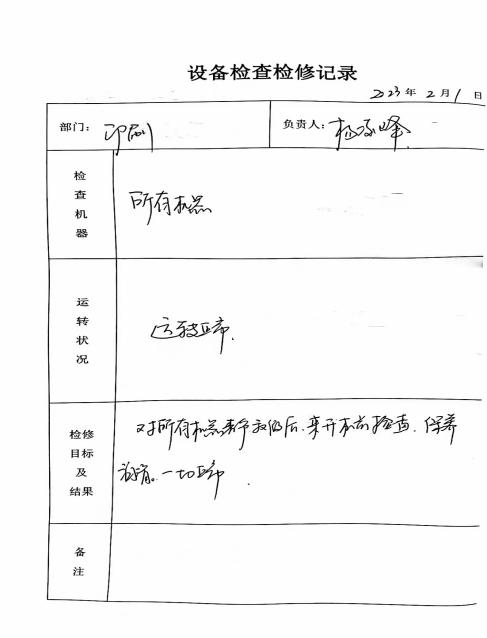 设备检查检修记录
2023年2月1日
部门：印刷 负责人：杨峰
检查机器 所有机器
运转状况 运转正常.
检修目标及结果 对所有机器春节放假后.来开机前检查.保养
一切正常.
备注